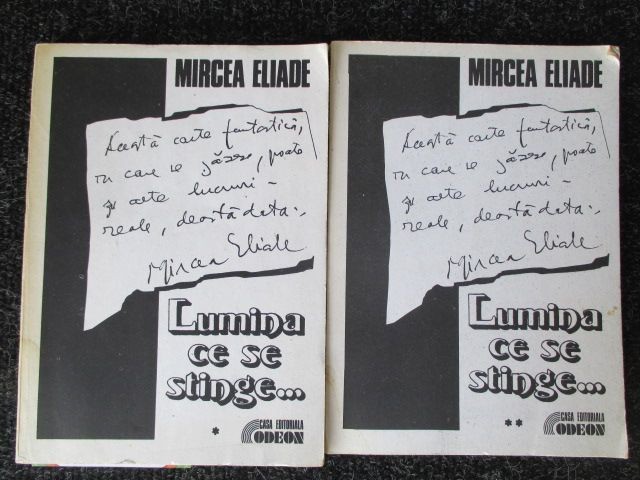 MIRCEA ELIADE
Această carte fantastică,
în care se găsesc, poate
și alte lucruri -
reale, deastădată..
Mircea Eliade
Lumina
ce se
stinge...
*
CASA EDITORIALA
ODEON
MIRCEA ELIADE
Această carte fantastică,
în care se găsesc, poate
și alte lucruri -
reale, deastădată..
Mircea Eliade
Lumina
ce se
stinge...
**
CASA EDITORIALA
ODEON